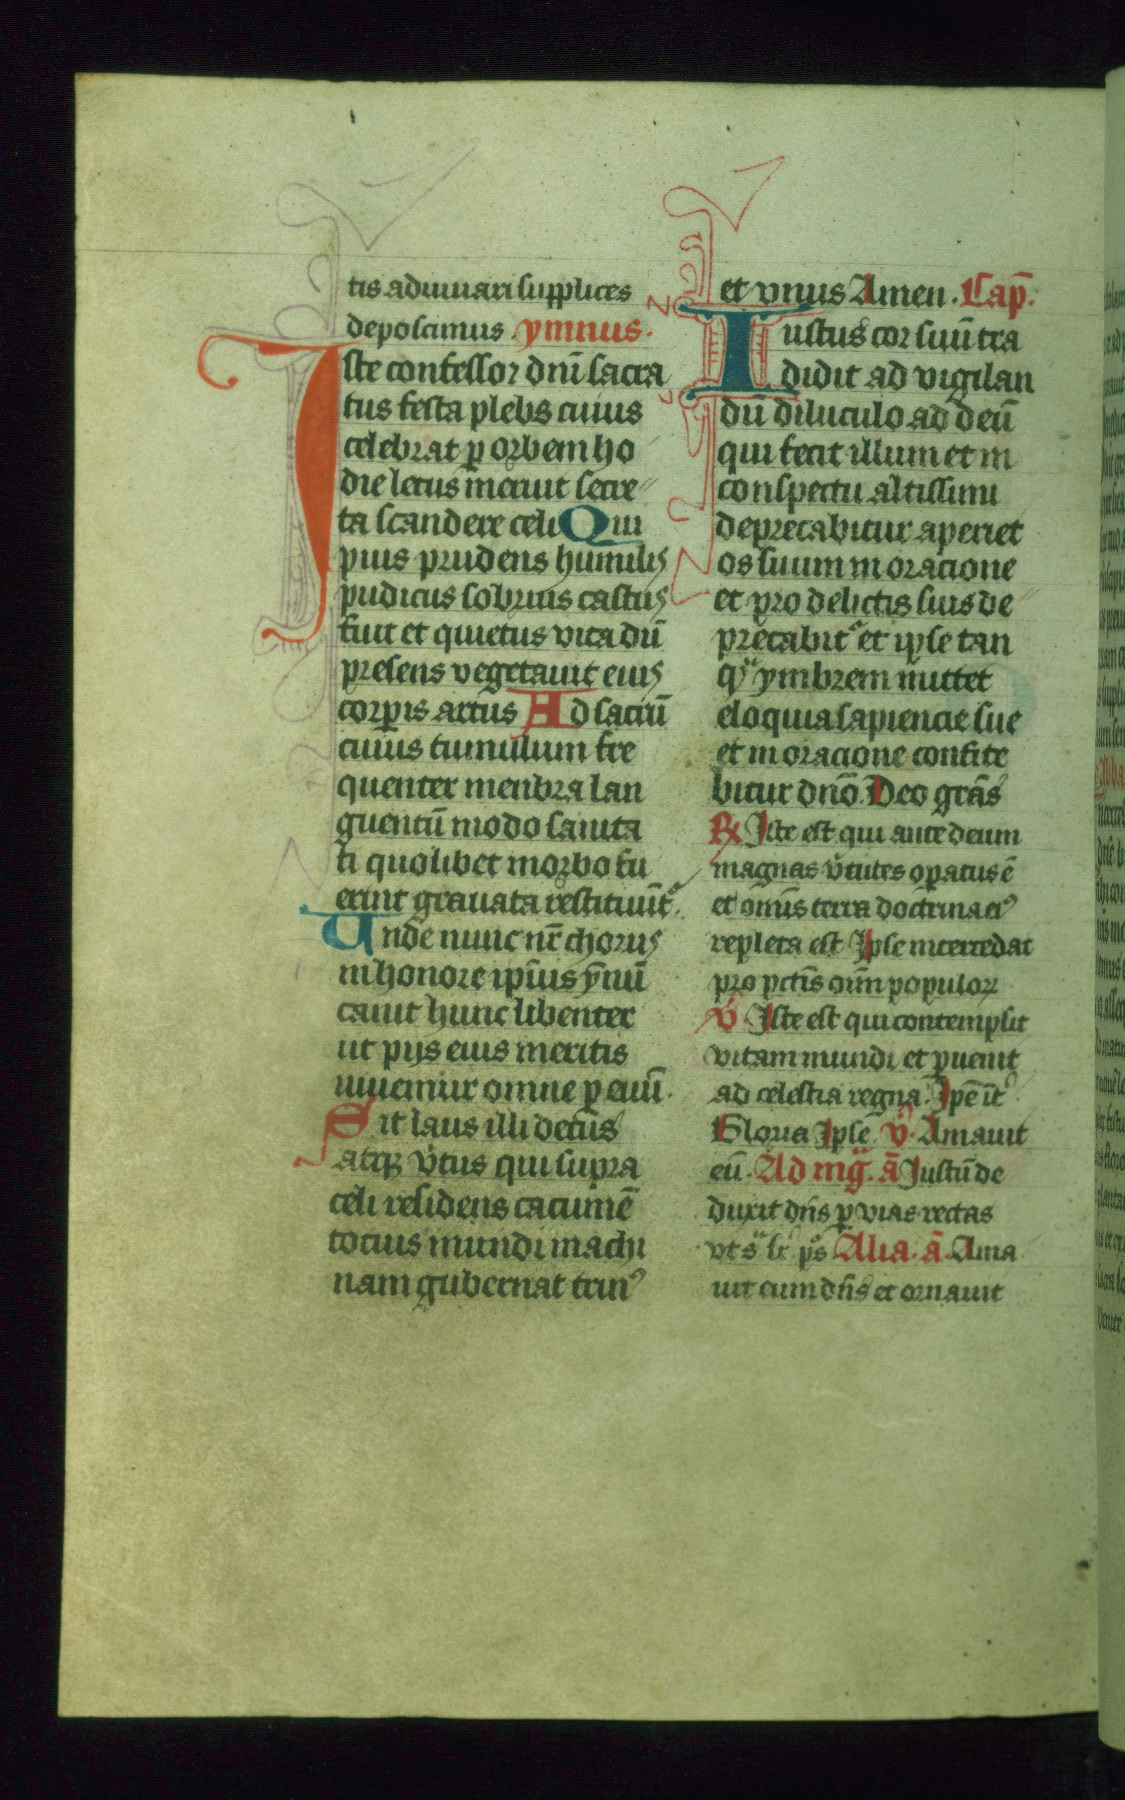 tis adiuuari supplices
deposcimus. ymnus.
Iste confessor dn̄i sacra
tus festa plebs cuius
celebrat ꝑ orbem ho
die letus meruit secre
ta scandere celi Qui
pius prudens humilis
pudicus sobrius castus
fuit et quietus vita dū
presens vegetauit eius
corꝑis artus Ad sacrū
cuius tumulum fre
quenter menbra lan
guentū modo sanita
ti quolibet morbo fu
erint grauata restituūt᷑.
Unde nunc nr̄ chorus
in honore ip̄ius ȳnū
canit hunc libenter
ut pijs eius meritis
iuuemur omne ꝑ euū.
Sit laus illi decus
atqꝫ v̓tus qui supra
celi residens cacumē
tocius mundi machi
nam gubernat trinꝰ
et vnus Amen. Cap̄.
Iustus cor suū tra
didit ad vigilan
dū diluculo ad deū
qui fecit illum et in
conspectu altissimi
deprecabitur aperiet
os suum in oracione
et pro delictis suis de
precabit᷑ et ipse tan
qᷓ ymbrem mittet
eloquia sapiencie sue
et in oracione confite
bitur dn̄o. Deo grās
℟ Iste est qui ante deum
magnas v̓tutes oꝑatus ē
et om̄is terra doctrina eiꝰ
repleta est Ipse intercedat
pro pctīs om̄ populoꝝ
℣. Iste est qui contempsit
vitam mundi et ꝑuenit
ad celestia regna. Ip̄e īt᷑
Gloria Ipse ℣. Amauit
eū. Ad mg̅. ā Iustū de
duxit dn̄s ꝑ vias rectas
vt sᷓ lr̄ p̄s Alia. ā. Ama
uit eum dn̄s et ornauit